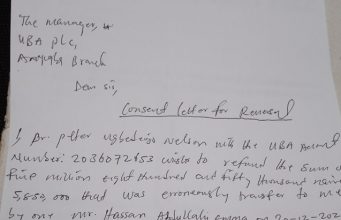 The manager,
UBA plc,
Branch
Dear sir,
Consent letter for Reversal
I Dr. Peter Nelson with the UBA Account
Number: 2036072653 wish to refund the sum of
five million eight hundred and fifty thousand naira
5,850,000 that was erroneously transfer to me
by one Mr. Hassan Abdullahi on